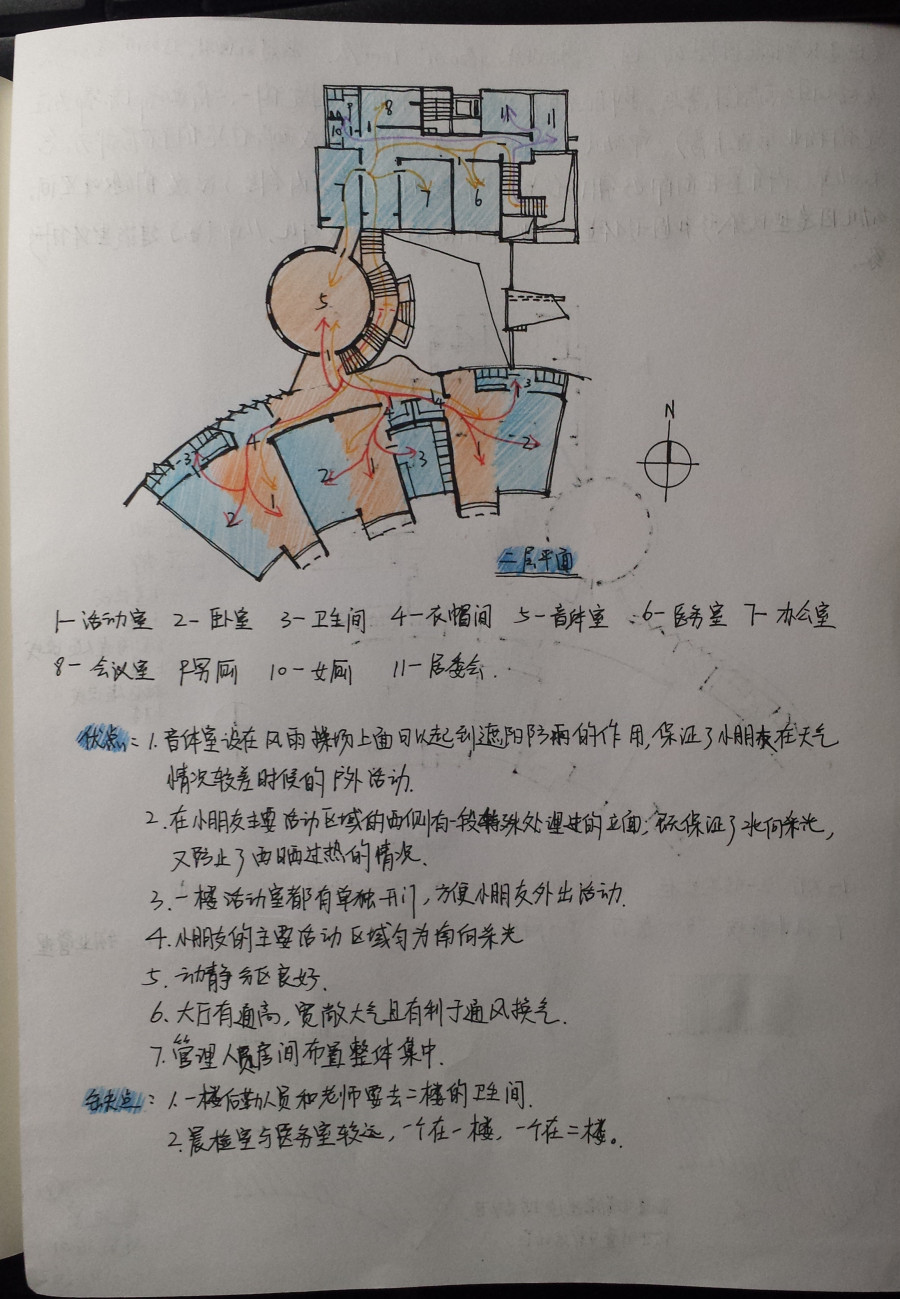 9
8
11
11
10
7
7
6
5
N
3
4
4
3
2
2
1
3
1
2
1
二层平面
1-活动室 2-卧室 3-卫生间 4-衣帽间 5-音体室 6-医务室 7-办公室
8-会议室 9-男厕 10-女厕 11-居委会.
优点:1.音体室设在风雨操场上面可以起到遮阳防雨的作用,保证了小朋友在天气
情况较差时候的户外活动.
2.在小朋友主要活动区域的西侧有一段特殊处理过的立面;既保证了北向采光,
又防止了西晒过热的情况.
3.一楼活动室都有单独开门,方便小朋友外出活动.
4.小朋友的主要活动区域匀为南向采光
5.动静分区良好.
6.大厅有通高,宽敞大气且有利于通风换气.
7.管理人员房间布置整体集中.
缺点:1.一楼后勤人员和老师要去二楼的卫生间.
2.晨检室与医务室较远,一个在一楼,一个在二楼。